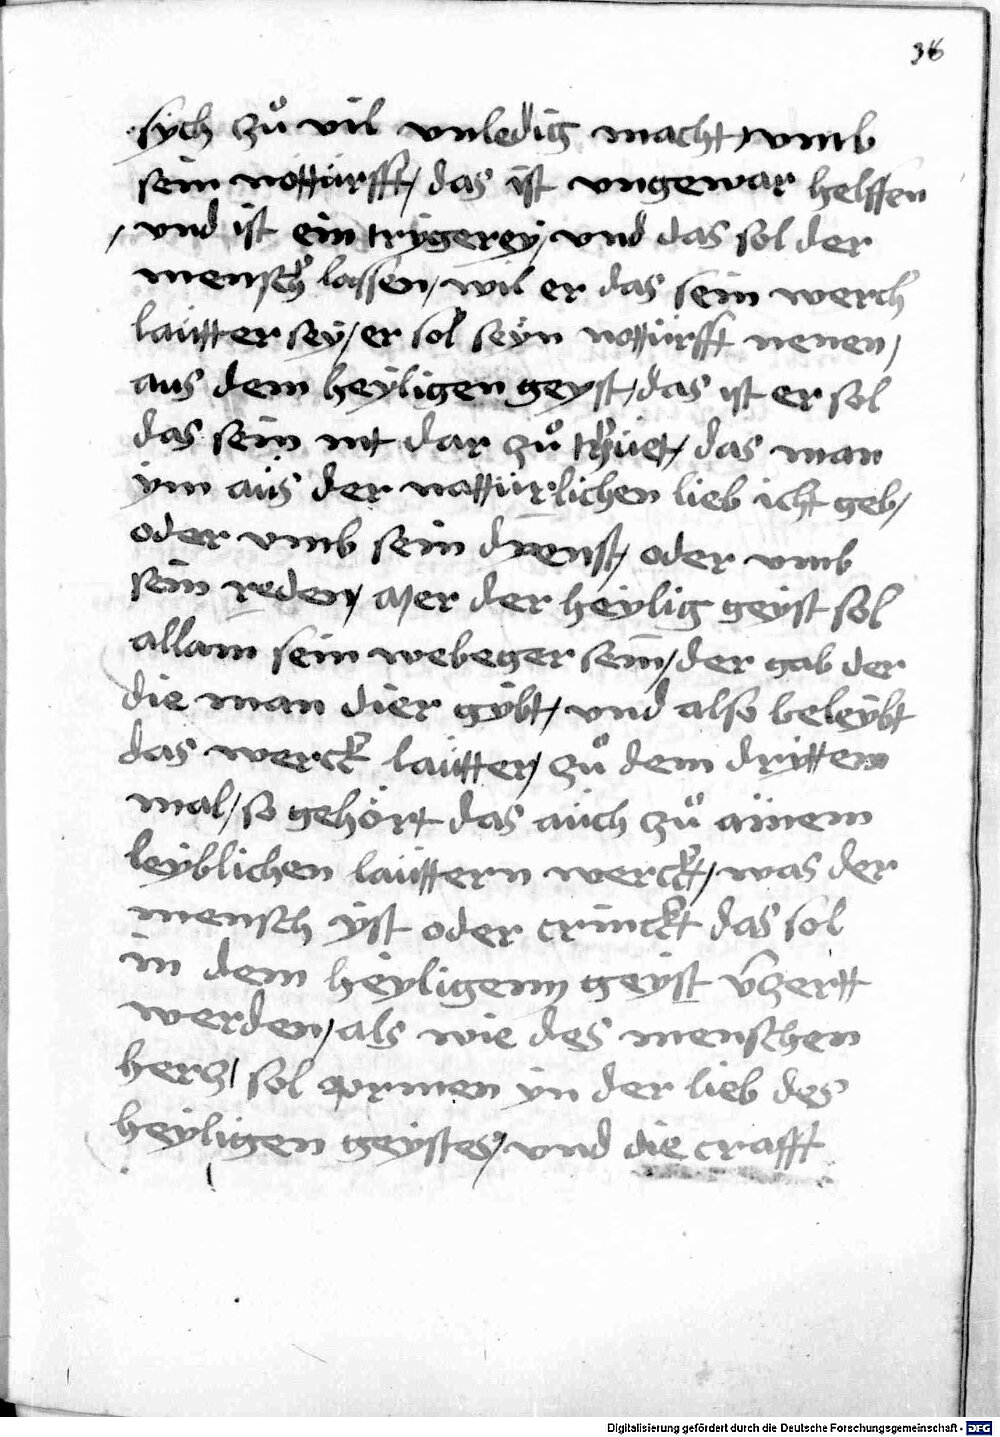 38
sych zů vil vnledig macht / vmb
sein notturfft / das ist vngewar helffen
/ vnd ist ein trÿgereÿ / vnd das sol der
mensch lassen / wil er das sein werch
lautter seÿ / er sol seÿn notturfft nemen /
aus dem heÿligen geyst / das ist er sol
das sein nit dar zů das man
ÿm aus der natturlichen lieb icht geb /
oder vmb sein dienst / oder vmb
sein reden / der heÿlig geÿst sol
allain sein webeger sein / der gab der
die man dier gÿbt / vnd also beleÿbt
das werck lautter / zů dem drÿttem
mal / so gehört das auch zů ainem
leÿblichen lauttern werckt / was der
mensch ÿst oder trinckt das sol
in dem heÿligenn geÿst v̄zertt
werden / als wie des menschen
hercz / sol ÿn der lieb des
heÿligen geÿstes / vnd die crafft
Digitalisierung gefördert durch die Deutsche Forschungsgemeinschaft - DFG